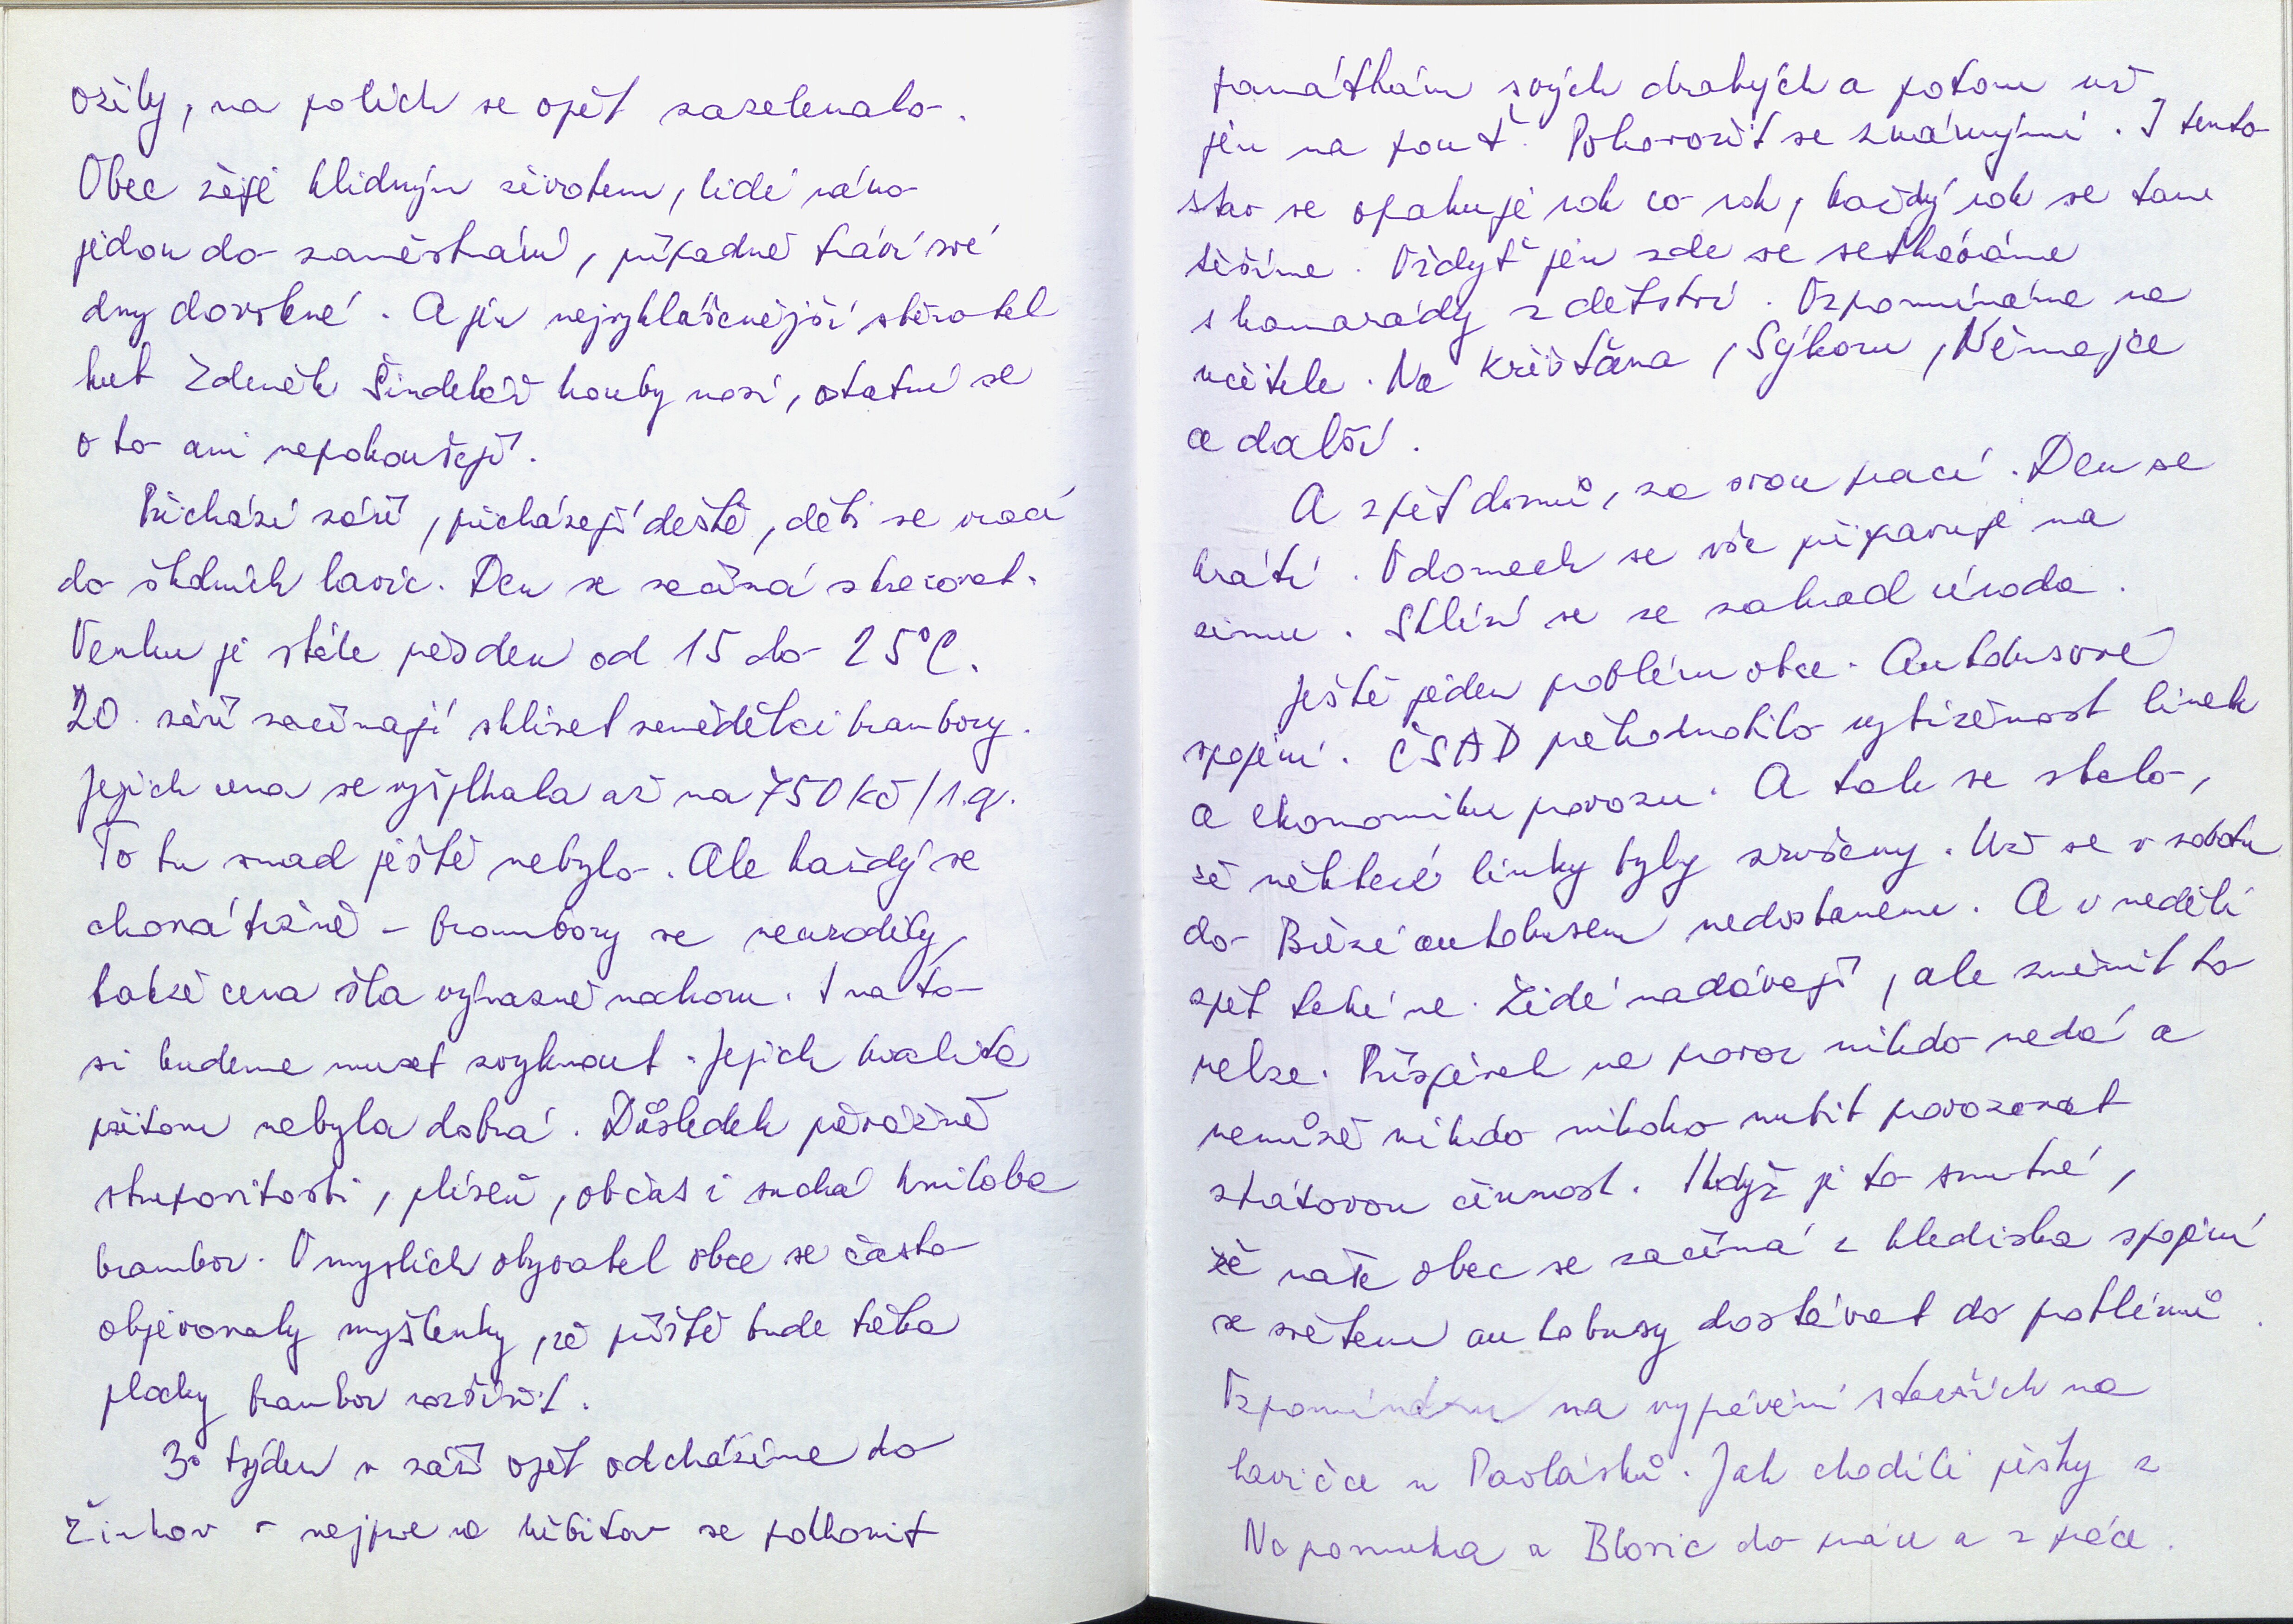 ožily, na polích se opět zazelenalo.
Obec žije klidným životem, lidé ráno
jedou do zaměstnání, případně tráví své
dny dovolené. A jen nejvyhlášenější sběratel
hub Zdeněk Šindelář houby nosí, ostatní se
o to ani nepokoušejí.
Přichází září, přicházejí deště, děti se vrací
do školních lavic. Den se začíná zkracovat.
Venku je stále přes den od 15 do 25°C.
20. září začínají sklízet zemědělci brambory.
Jejich cena se vyšplhala až na 750 Kč/1.q.
To tu snad ještě nebylo. Ale každý se
chová tržně - brambory se neurodily,
takže cena šla výrazně nahoru. I na to
si budeme muset zvyknout. Jejich kvalita
přitom nebyla dobrá. Důsledek převážně
strupovitosti, plíseň, občas i suchá hniloba
brambor. V myslích obyvatel obce se často
objevovaly myšlenky, že příště bude třeba
plochy brambor rozšířit.
3. týden v září opět odcházíme do
Žinkov - nejprve na hřbitov se poklonit
památkám svých drahých a potom už
jen na pouť. Pohovořit se známými. I tento
stav se opakuje rok co rok, každý rok se tam
těšíme. Vždyť jen zde se setkáváme
s kamarády z dětství. Vzpomínáme na
učitele. Na Křišťána, Sýkoru, Němejce
a další.
A zpět domů, za svou prací. Den se
krátí. V domech se vše připravuje na
zimu. Sklízí se ze zahrad úroda.
Ještě jeden problém obce. Autobusové
spojení. ČSAD přehodnotilo vytíženost linek
a ekonomiku provozu. A tak se stalo,
že některé linky byly zrušeny. Už se v sobotu
do Březí autobusem nedostaneme. A v neděli
zpět také ne. Lidé nadávají, ale změnit to
nelze. Příspěvek na provoz nikdo nedá a
nemůže nikdo nikoho nutit provozovat
ztrátovou činnost. I když je to smutné,
že naše obec se začíná z hlediska spojení
se světem autobusy dostávat do problémů.
Vzpomínám na vyprávění starších na
lavičce u Pavlásků. Jak chodili pěšky z
Nepomuka a Blovic do práce a z práce.